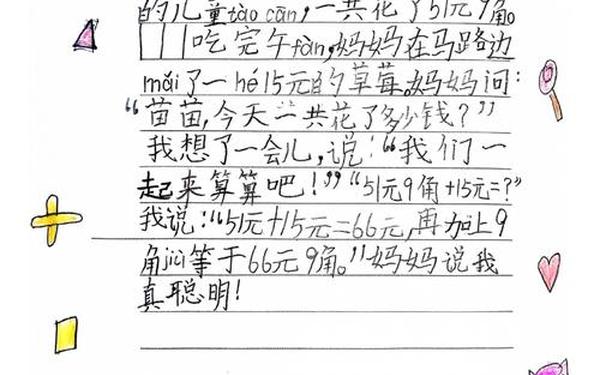 的儿童tào cān，一共花了51元9角。
吃完午fàn，妈妈在马路边
mǎi了一hé15元的草莓。妈妈问：
“苗苗，今天一共花了多少钱？”
我想了一会儿，说：“我们一
起来算算吧！”“51元9角+15元=？”
我说：“51元+15元=66元，再加上9
角jiù等于66元9角。”妈妈说我
真聪明！